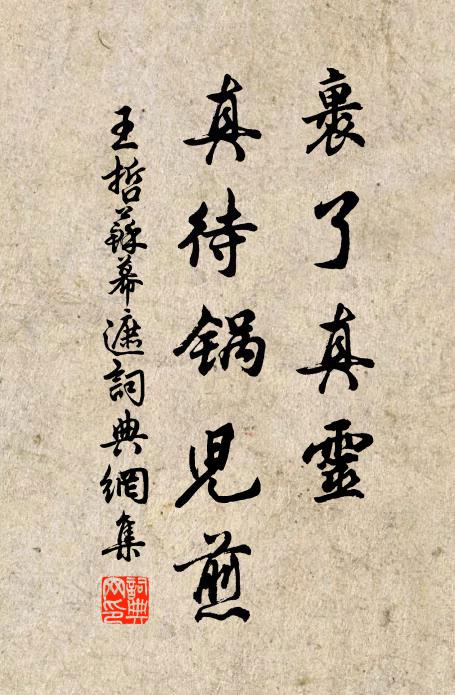 裹了真靈
真待锅児煎
王哲蘇幕遮詞典網集
詞典
网印